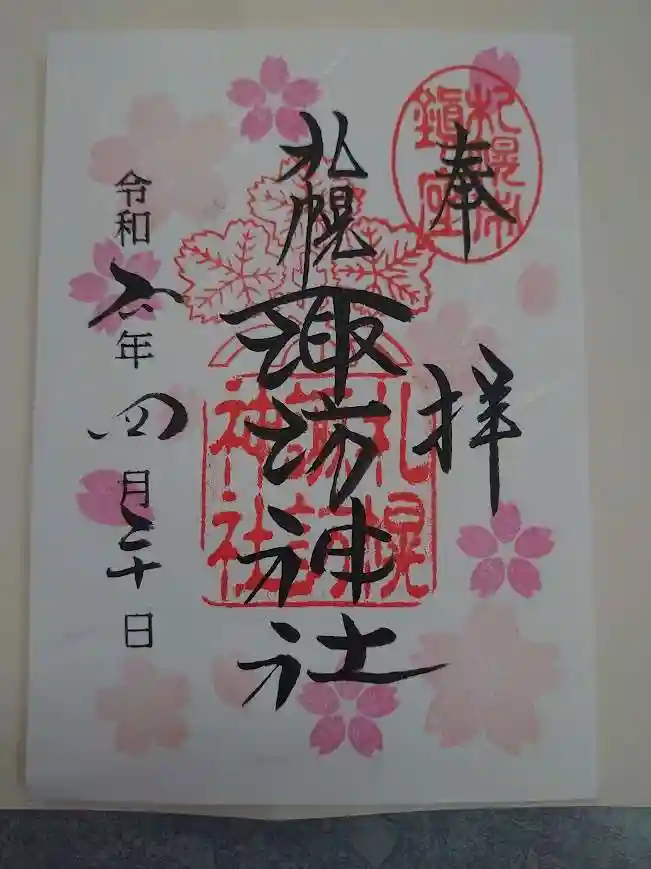 奉拝
札幌市
鎮座
札幌諏訪神社
札幌
諏訪
神社
令和六年四月二十日